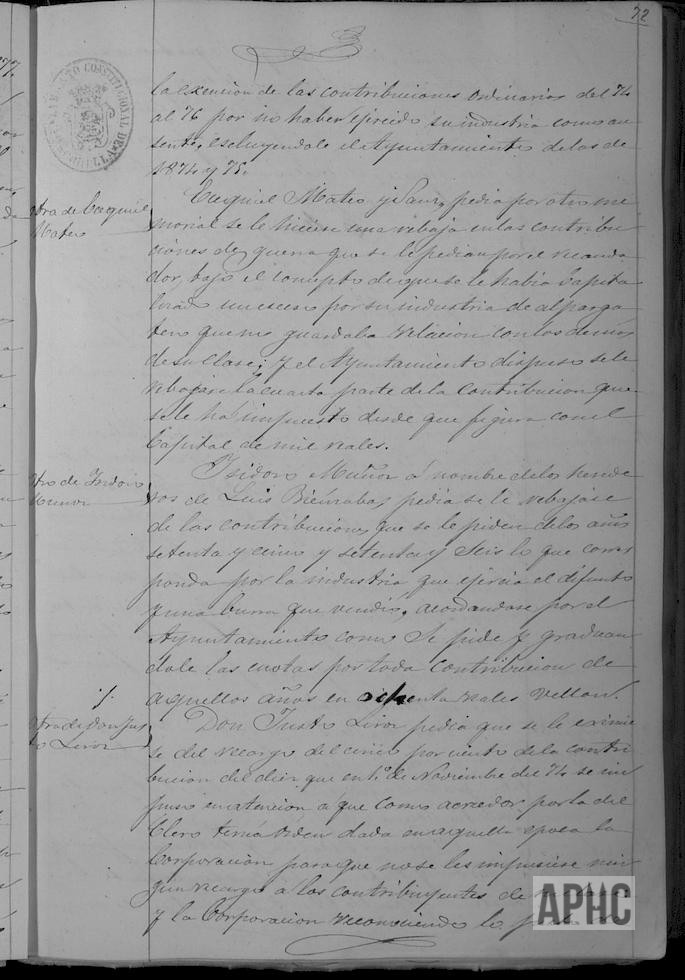 72
la exencion de las contribuciones ordinarias del 74
al 76 por no haber ejercido su industria como au
sente, escluyendole el Ayuntamiento de las de
1874 y 75.
Otra de Ezequiel
Mateo
Ezequiel Mateo y Sanz, pedia por otro me
morial se le hiciese una rebaja en las contribu
ciones de guerra que se le pedian por el recauda
dor, bajo el concepto de que se le habia capita
lizado un esceso por su industria de alparga
tero que no guardaba relacion con los demas
de su clase; y el Ayuntamiento dispuso se le
rebajase la cuarta parte de la contribucion que
se le ha impuesto desde que figura con el
Capital de mil reales.
Otro de Isidoro
Muñoz
Isidoro Muñoz á nombre de los herede
ros de Luis pedia se le rebajase
de las contribuciones que se le piden de los años
setenta y cinco y setenta y seis lo que corres
ponda por la industria que ejercia el difunto
y una burra que vendió, acordandose por el
Ayuntamiento como se pide y graduan
dole las cuotas por toda contribucion de
aquellos años en ochenta reales vellon.
Otra de Don Jus
to Liror
Don Justo Liror pedia que se le eximie
se del recargo del cinco por ciento de la contri
bucion del diez que en 1.º de Noviembre del 74 se im
puso en atencion á que como acreedor por la del
Clero tenia orden dada en aquella epoca la
Corporacion para que no se les impusiese nin
gun recargo a los contribuyentes de
y la Corporacion reconociendo lo
AYUNTAMIENTO CONSTITUCIONAL DE
APHC